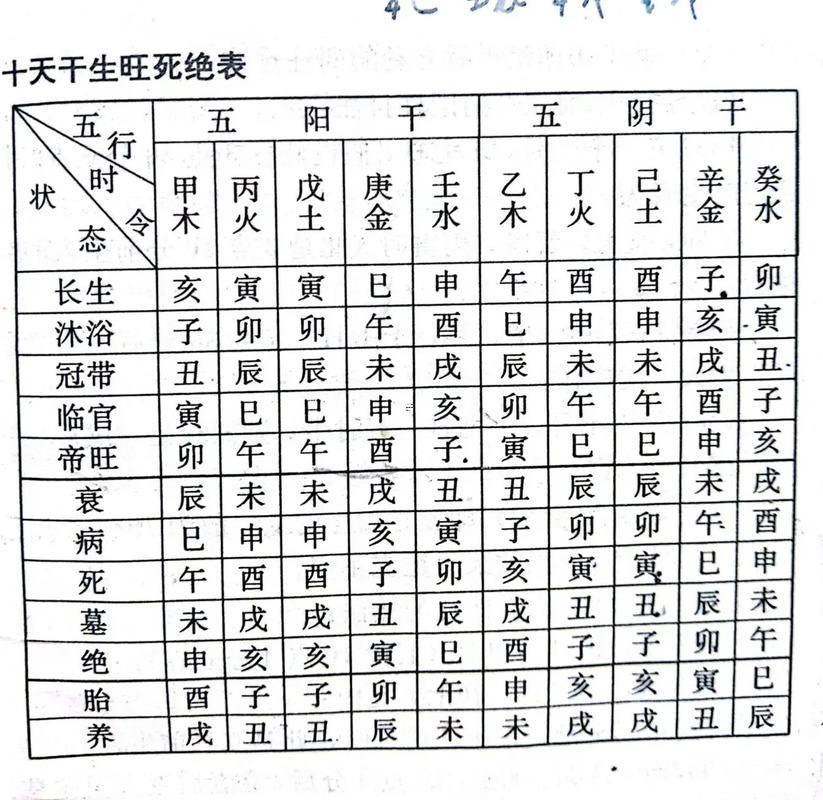 十天干生旺死绝表
五行 时令 状态 五阳干 五阴干
甲木 丙火 戊土 庚金 壬水 乙木 丁火 己土 辛金 癸水
长生 亥 寅 寅 巳 申 午 酉 酉 子 卯
沐浴 子 卯 卯 午 酉 巳 申 申 亥 寅
冠带 丑 辰 辰 未 戌 辰 未 未 戌 丑
临官 寅 巳 巳 申 亥 卯 午 午 酉 子
帝旺 卯 午 午 酉 子 寅 巳 巳 申 亥
衰 辰 未 未 戌 丑 丑 辰 辰 未 戌
病 巳 申 申 亥 寅 子 卯 卯 午 酉
死 午 酉 酉 子 卯 亥 寅 寅 巳 申
墓 未 戌 戌 丑 辰 戌 丑 丑 辰 未
绝 申 亥 亥 寅 巳 酉 子 子 卯 午
胎 酉 子 子 卯 午 申 亥 亥 寅 巳
养 戌 丑 丑 辰 未 未 戌 戌 丑 辰